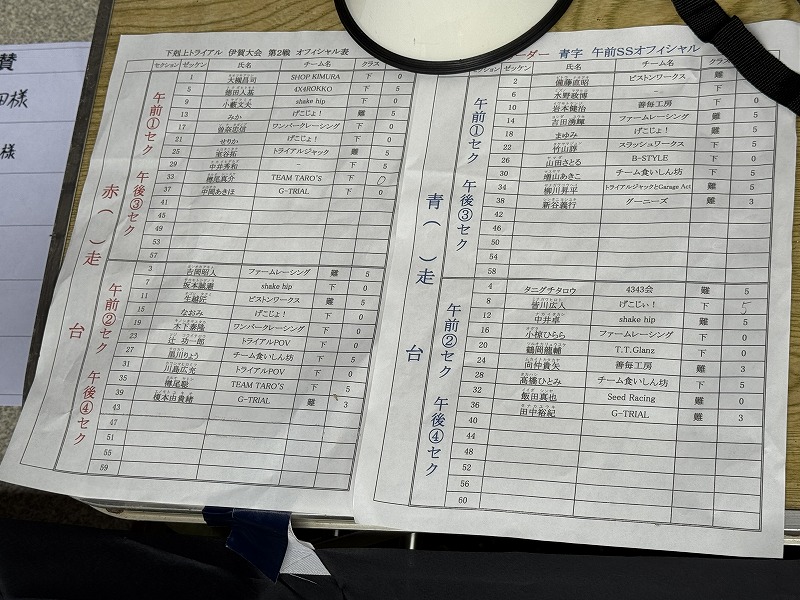 賛
様
様
下剋上トライアル 伊賀大会 第2戦 オフィシャル表
セクション ゼッケン 氏名 チーム名 クラス
午前①セク 午後③セク
赤( )走 台
1 大槻昌司 SHOP KIMURA 下 0
5 徳田人基 4X4ROKKO 下 5
9 小薮文夫 shake hip 下 0
13 みか げこじょ! 難 5
17 曽奈忠信 ワンパークレーシング 下 0
21 せりか げこじょ! 下 0
25 室谷拓 トライアルジャック 難 5
29 中井秀和 - 下 5
33 樽尾真介 TEAM TARO'S 下 0
37 中岡あきほ G-TRIAL 下 0
41
45
49
53
57
午前②セク 午後④セク
3 吉岡昭人 ファームレーシング 難 5
7 坂本誠憲 shake hip 下 0
11 生越匠 ピストンワークス 難 5
15 なおみ げこじょ! 下 0
19 木下泰隆 ワンパークレーシング 下 0
23 辻功一郎 トライアルPOV 下 0
27 黒川りょう チーム食いしん坊 下 5
31 川島広充 トライアルPOV 下 0
35 樽尾毅 TEAM TARO'S 下 5
39 榎本由貴緒 G-TRIAL 難 3
43
47
51
55
59
ーダー 青字 午前SSオフィシャル
セクション ゼッケン 氏名 チーム名 クラス
午前①セク 午後③セク
青( )走 台
2 備藤直昭 ピストンワークス 難
6 水野政博 - 下
10 岩本健治 善毎工房 下 0
14 吉田湧輝 ファームレーシング 難 5
18 まゆみ げこじょ! 下 0
22 竹山諄 スラッシュワークス 下 5
26 山田さとる B-STYLE 下 0
30 増山あきこ チーム食いしん坊 下 5
34 柳川昇平 トライアルジャックとGarage Act 難 5
38 新谷義行 グーニーズ 難 3
42
46
50
54
58
午前②セク 午後④セク
4 タニグチタロウ 4343会 難 5
8 皆川広人 げこじぃ! 下 5
12 中井卓 shake hip 難 5
16 小椋ひらら ファームレーシング 下 0
20 鶴岡龍輔 T.T.Glanz 下 0
24 向仲貴矢 善毎工房 難 3
28 高橋ひとみ チーム食いしん坊 下 5
32 飯田真也 Seed Racing 難 0
36 田中裕紀 G-TRIAL 難 3
40
44
48
52
56
60